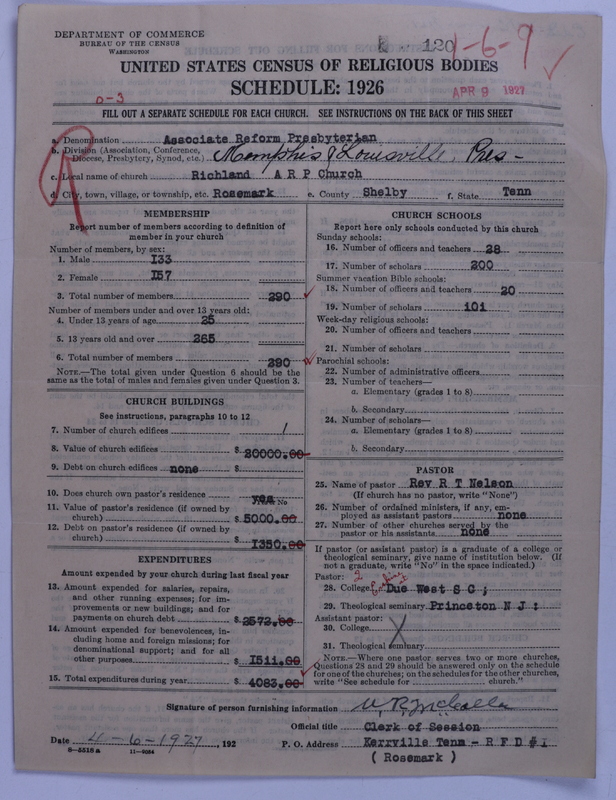 DEPARTMENT OF COMMERCE
BUREAU OF THE CENSUS
WASHINGTON
120 1-6-9
UNITED STATES CENSUS OF RELIGIOUS BODIES
SCHEDULE: 1926
APR 9 1927
0-3
FILL OUT A SEPARATE SCHEDULE FOR EACH CHURCH. SEE INSTRUCTIONS ON THE BACK OF THIS SHEET
R
a. Denomination Associate Reform Presbyterian
b. Division (Association, Conference, Diocese, Presbytery, Synod, etc.) Memphis & Louisville, Pres-
c. Local name of church Richland A R P Church
d. City, town, village, or township, etc. Rosemark e. County Shelby f. State Tenn
MEMBERSHIP
Report number of members according to definition of
member in your church
Number of members, by sex:
1. Male 133
2. Female 157
3. Total number of members 290
Number of members under and over 13 years old:
4. Under 13 years of age 25
5. 13 years old and over 265
6. Total number of members 290
NOTE.—The total given under Question 6 should be the
same as the total of males and females given under Question 3.
CHURCH BUILDINGS
See instructions, paragraphs 10 to 12
7. Number of church edifices 1
8. Value of church edifices $ 20000.00
9. Debt on church edifices none $
10. Does church own pastor's residence yes No
11. Value of pastor's residence (if owned by
church) $ 5000.00
12. Debt on pastor's residence (if owned by
church) $ 1350.00
EXPENDITURES
Amount expended by your church during last fiscal year
13. Amount expended for salaries, repairs,
and other running expenses; for im-
provements or new buildings; and for
payments on church debt $ 2572.00
14. Amount expended for benevolences, in-
cluding home and foreign missions; for
denominational support; and for all
other purposes $ 1511.00
15. Total expenditures during year $ 4083.00
CHURCH SCHOOLS
Report here only schools conducted by this church
Sunday schools:
16. Number of officers and teachers 28
17. Number of scholars 200
Summer vacation Bible schools:
18. Number of officers and teachers 20
19. Number of scholars 101
Week-day religious schools:
20. Number of officers and teachers
21. Number of scholars
Parochial schools:
22. Number of administrative officers
23. Number of teachers—
a. Elementary (grades 1 to 8)
b. Secondary
24. Number of scholars—
a. Elementary (grades 1 to 8)
b. Secondary
PASTOR
25. Name of pastor Rev R T Nelson
(If church has no pastor, write "None")
26. Number of ordained ministers, if any, em-
ployed as assistant pastors none
27. Number of other churches served by the
pastor or his assistants none
If pastor (or assistant pastor) is a graduate of a college or
theological seminary, give name of institution below. (If
not a graduate, write "No" in the space indicated.)
Pastor: 2
28. College Erskine Due West S C ;
29. Theological seminary Princeton N J :
Assistant pastor:
30. College
31. Theological seminary
NOTE.—Where one pastor serves two or more churches,
Questions 28 and 29 should be answered only on the schedule
for one of the churches; on the schedules for the other churches,
write "See schedule for church."
Signature of person furnishing information
Official title Clerk of Session
Date 4-6-1927, 192 P. O. Address Kerrville Tenn - R F D # 1
8-5518 a 11-9054 ( Rosemark )